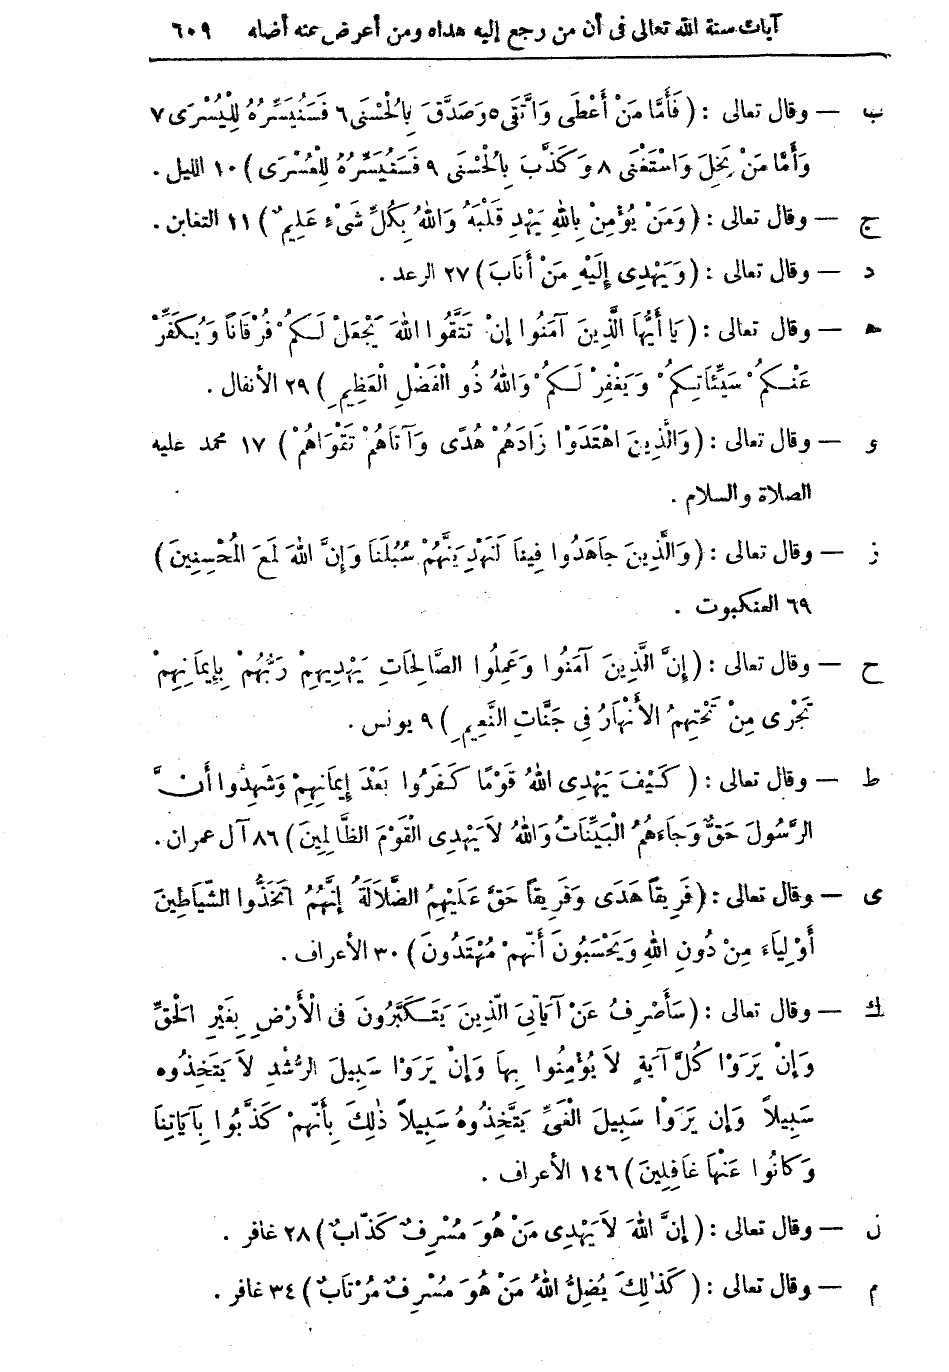 آيات سنة الله تعالى فى أن من رجع إليه هداه ومن أعرض عنه أضله ٦٠٩
ب — وقال تعالى : ( فَأَمَّا مَنْ أَعْطَى وَاتَّقَى ٥ وَصَدَّقَ بِالْحُسْنَى ٦ فَسَنُيَسِّرُهُ لِلْيُسْرَى ٧
وَأَمَّا مَنْ بَخِلَ وَاسْتَغْنَى ٨ وَكَذَّبَ بِالْحُسْنَى ٩ فَسَنُيَسِّرُهُ لِلْعُسْرَى ) ١٠ الليل .
ج — وقال تعالى : ( وَمَنْ يُؤْمِنْ بِاللهِ يَهْدِ قَلْبَهُ وَاللهُ بِكُلِّ شَىْءٍ عَلِيمٌ ) ١١ التغابن .
د — وقال تعالى : ( وَيَهْدِى إِلَيْهِ مَنْ أَنَابَ ) ٢٧ الرعد .
ه — وقال تعالى : ( يَا أَيُّهَا الَّذِينَ آمَنُوا إِنْ تَتَّقُوا اللهَ يَجْعَلْ لَكُمْ فُرْقَانًا وَيُكَفِّرْ
عَنْكُمْ سَيِّئَاتِكُمْ وَيَغْفِرْ لَكُمْ وَاللهُ ذُو الْفَضْلِ الْعَظِيمِ ) ٢٩ الأنفال .
و — وقال تعالى : ( وَالَّذِينَ اهْتَدَوْا زَادَهُمْ هُدًى وَآتَاهُمْ تَقْوَاهُمْ ) ١٧ محمد عليه
الصلاة والسلام .
ز — وقال تعالى : ( وَالَّذِينَ جَاهَدُوا فِينَا لَنَهْدِيَنَّهُمْ سُبُلَنَا وَإِنَّ اللهَ لَمَعَ الْمُحْسِنِينَ )
٦٩ العنكبوت .
ح — وقال تعالى : ( إِنَّ الَّذِينَ آمَنُوا وَعَمِلُوا الصَّالِحَاتِ يَهْدِيهِمْ رَبُّهُمْ بِإِيمَانِهِمْ
تَجْرِى مِنْ تَحْتِهِمُ الأَنْهَارُ فِى جَنَّاتِ النَّعِيمِ ) ٩ يونس .
ط — وقال تعالى : ( كَيْفَ يَهْدِى اللهُ قَوْمًا كَفَرُوا بَعْدَ إِيمَانِهِمْ وَشَهِدُوا أَنَّ
الرَّسُولَ حَقٌّ وَجَاءَهُمُ الْبَيِّنَاتُ وَاللهُ لاَ يَهْدِى الْقَوْمَ الظَّالِمِينَ ) ٨٦ آل عمران .
ى — وقال تعالى : ( فَرِيقًا هَدَى وَفَرِيقًا حَقَّ عَلَيْهِمُ الضَّلاَلَةُ إِنَّهُمُ اتَّخَذُوا الشَّيَاطِينَ
أَوْلِيَاءَ مِنْ دُونِ اللهِ وَيَحْسَبُونَ أَنَّهُمْ مُهْتَدُونَ ) ٣٠ الأعراف .
ك — وقال تعالى : ( سَأَصْرِفُ عَنْ آيَاتِىَ الَّذِينَ يَتَكَبَّرُونَ فِى الْأَرْضِ بِغَيْرِ الْحَقِّ
وَإِنْ يَرَوْا كُلَّ آيَةٍ لاَ يُؤْمِنُوا بِهَا وَإِنْ يَرَوْا سَبِيلَ الرُّشْدِ لاَ يَتَّخِذُوه
سَبِيلاً وَإِن يَرَوْا سَبِيلَ الْغَىِّ يَتَّخِذُوهُ سَبِيلاً ذٰلِكَ بِأَنَّهُمْ كَذَّبُوا بِآيَاتِنَا
وَكَانُوا عَنْهَا غَافِلِينَ ) ١٤٦ الأعراف .
ل — وقال تعالى : ( إِنَّ اللهَ لاَ يَهْدِى مَنْ هُوَ مُسْرِفٌ كَذَّابٌ ) ٢٨ غافر .
م — وقال تعالى : ( كَذٰلِكَ يُضِلُّ اللهُ مَنْ هُوَ مُسْرِفٌ مُرْتَابٌ ) ٣٤ غافر .